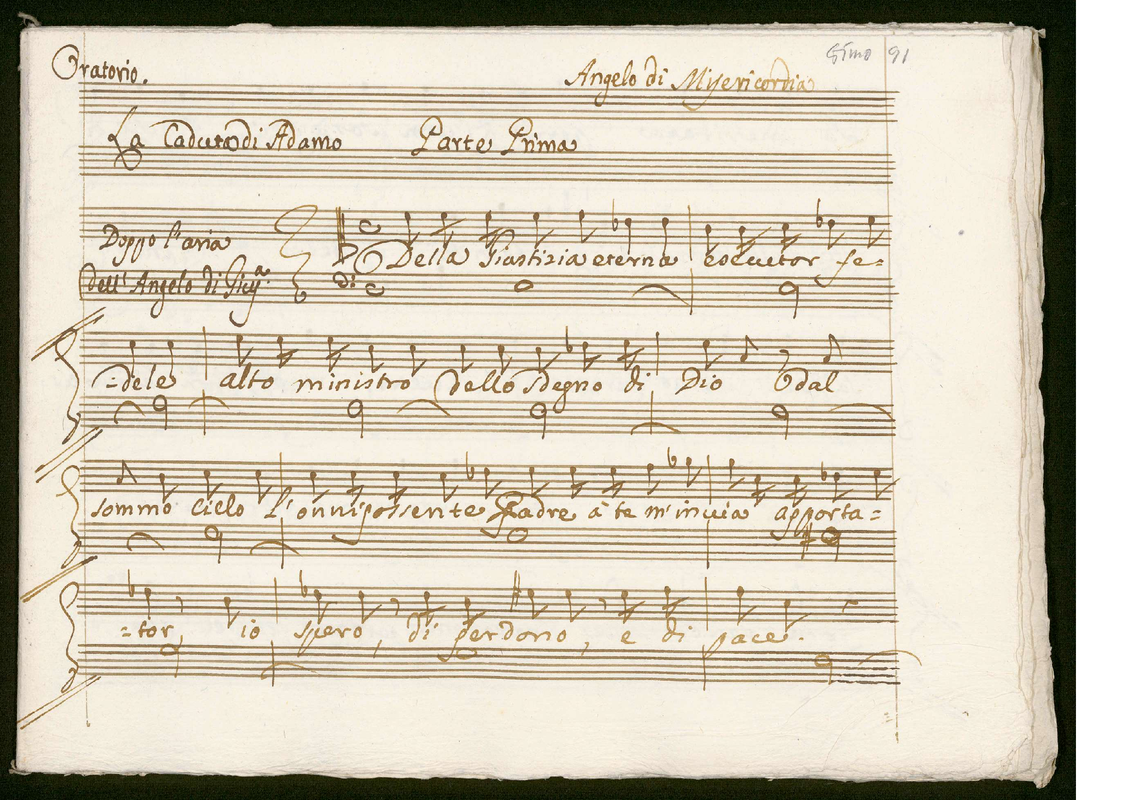 Gimo 91
Oratorio. Angelo di Misericordia
La Caduta di Adamo Parte Prima
Doppo l'aria
dell'Angelo di Giuƒ.
Della Giustizia eterna esecutor fe=
=dele alto ministro dello sdegno di Dio dal
sommo cielo l'onnipossente Padre à te m'inuia apporta=
=tor, io spero, di perdono, e di pace.